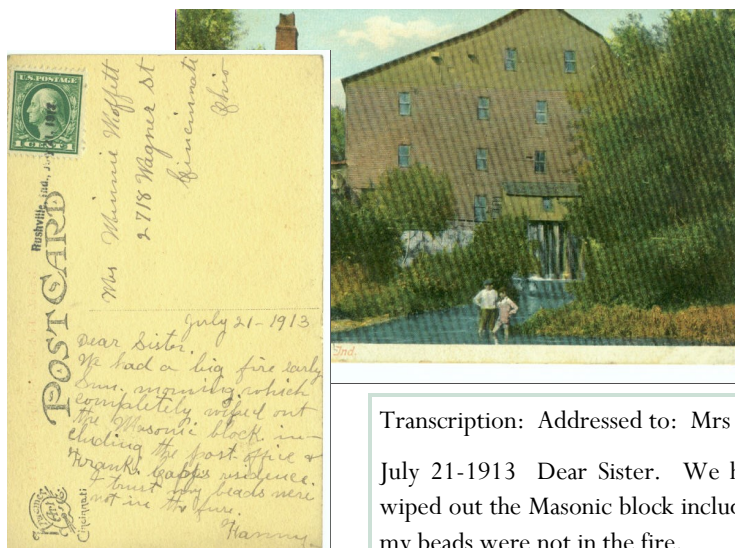 U.S. POSTAGE
1 CENT 1
Rushville, Ind.,
POST CARD
Cincinnati
Mrs Minnie Moffett
2718 Wagner St
Cincinnati
Ohio
July 21-1913
Dear Sister.
We had a big fire early
Sun. morning which
completely wiped out
the Masonic block in-
cluding the post office &
Frank residence.
I trust my beads were
not in the fire.
Ind.
Transcription: Addressed to: Mrs
July 21-1913 Dear Sister. We
wiped out the Masonic block
my beads were not in the fire.